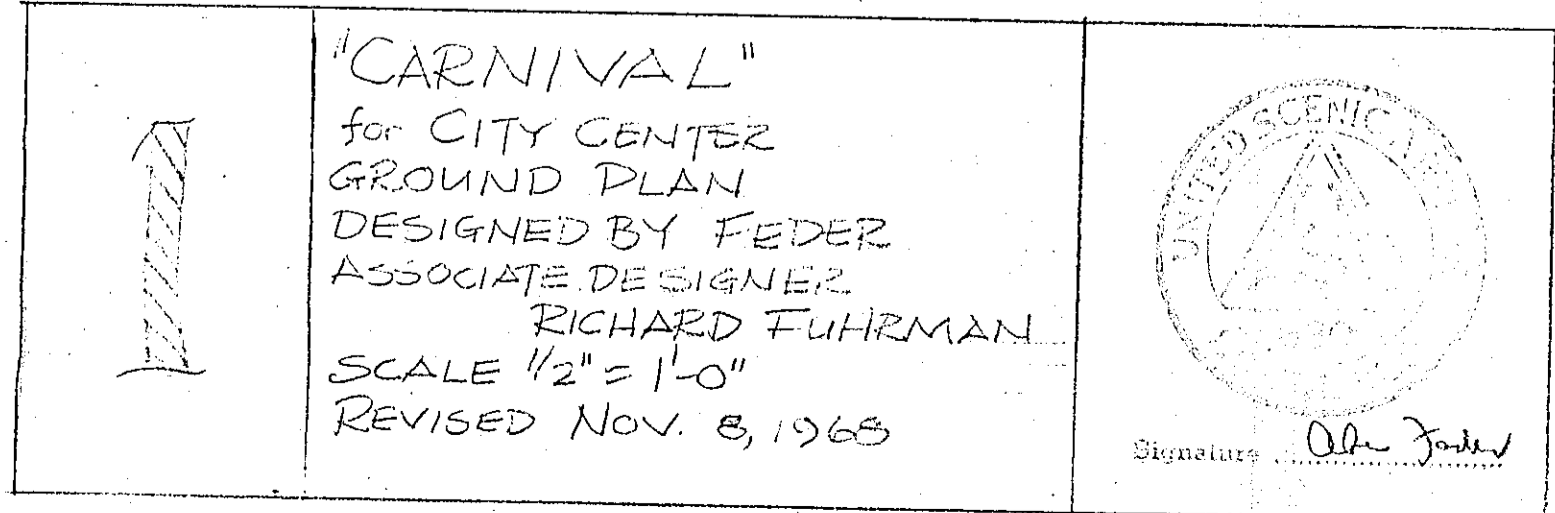 1
"CARNIVAL"
for CITY CENTER
GROUND PLAN
DESIGNED BY FEDER
ASSOCIATE DESIGNER
RICHARD FUHRMAN
SCALE 1/2" = 1'-0"
REVISED NOV. 8, 1968
UNITED SCENIC
Signature